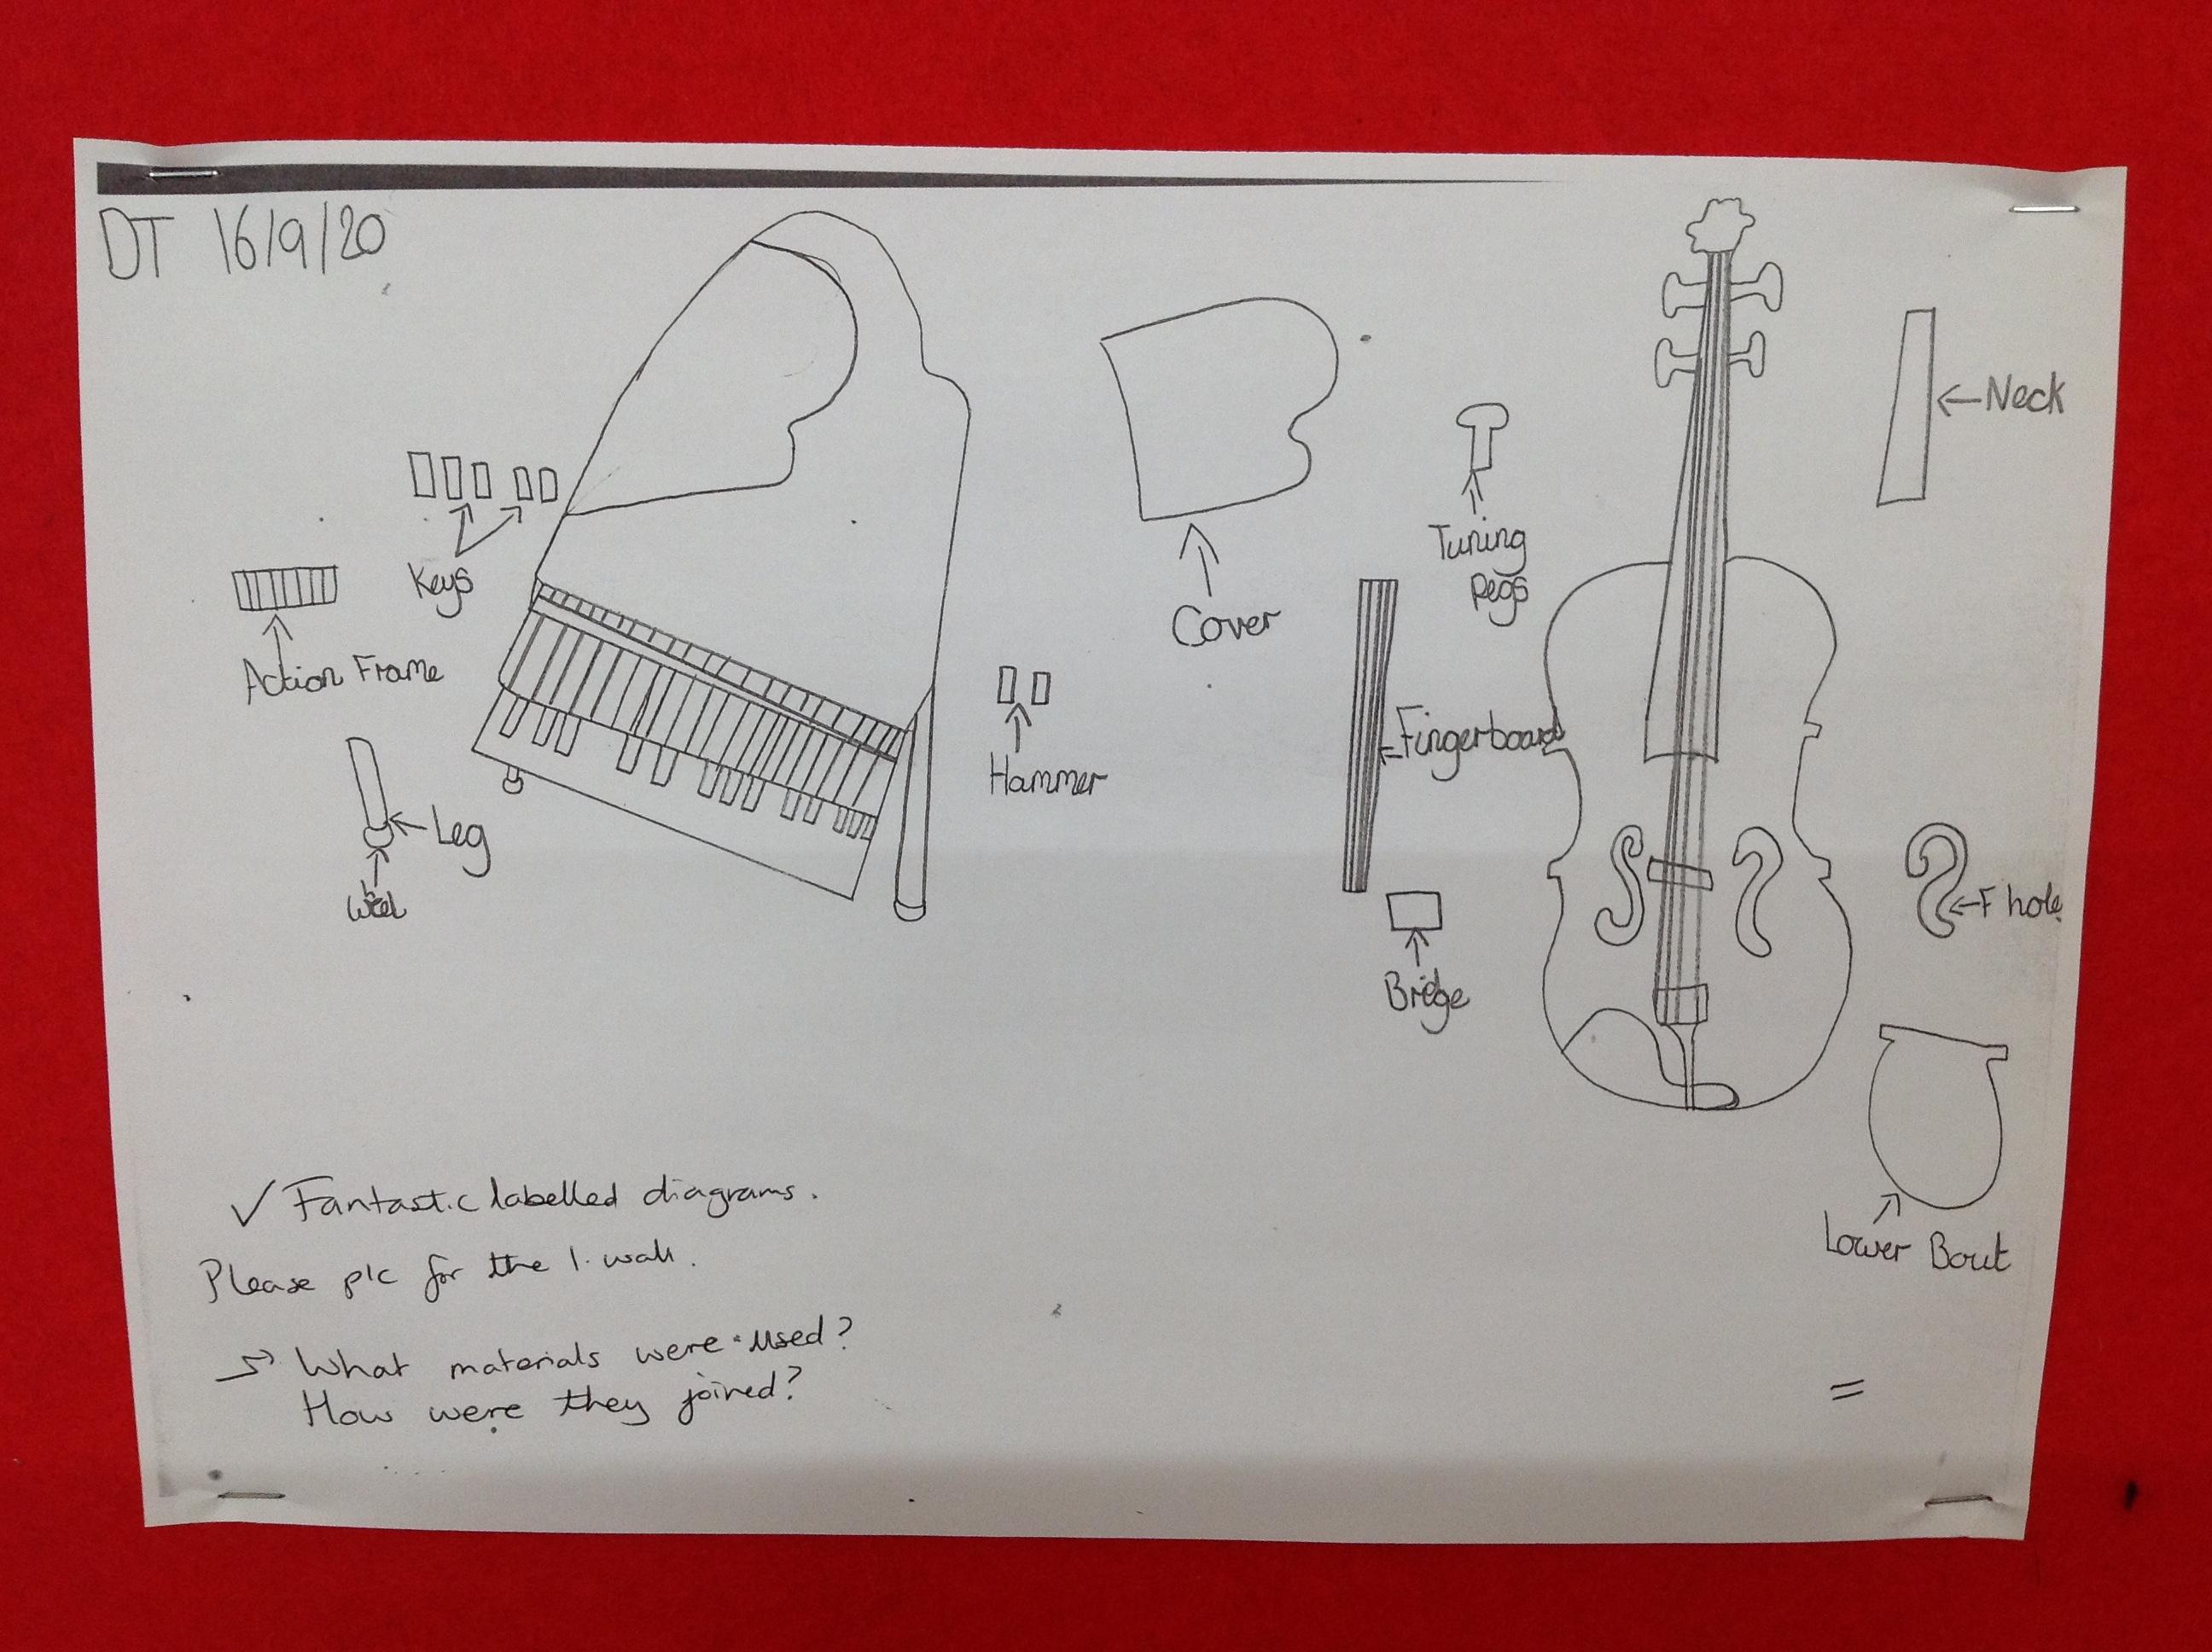 DT 16/9/20
Keys
Action Frame
Leg
Wheel
Hammer
Cover
Tuning
Pegs
Fingerboard
Bridge
Neck
F hole
Lower Bout
✓ Fantastic labelled diagrams.
Please pic for the l. wall.
→ What materials were used?
How were they joined?
=